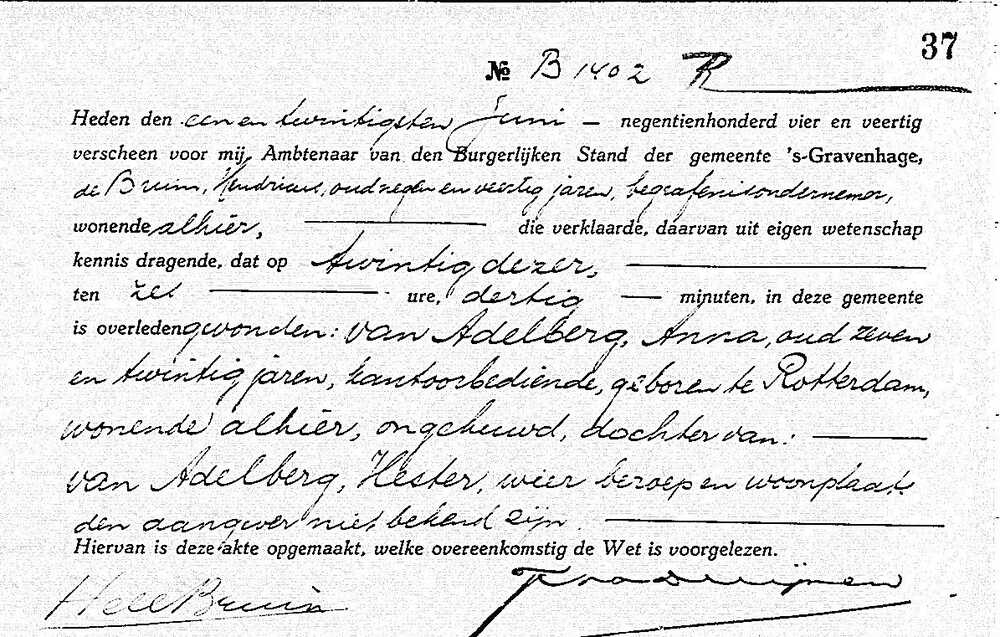 37
№ B 1402 R
Heden den een en twintigsten Juni — negentienhonderd vier en veertig
verscheen voor mij, Ambtenaar van den Burgerlijken Stand der gemeente 's-Gravenhage,
de Bruin, Hendricus, oud negen en veertig jaren, begrafenisondernemer,
wonende alhier, — die verklaarde, daarvan uit eigen wetenschap
kennis dragende, dat op twintig dezer, —
ten zes — ure, dertig — minuten, in deze gemeente
is overleden gevonden: van Adelberg, Anna, oud zeven
en twintig jaren, kantoorbediende, geboren te Rotterdam,
wonende alhier, ongehuwd, dochter van: —
van Adelberg, Hester, wier beroep en woonplaats
den aangever niet bekend zijn. —
Hiervan is deze akte opgemaakt, welke overeenkomstig de Wet is voorgelezen.
Bruin